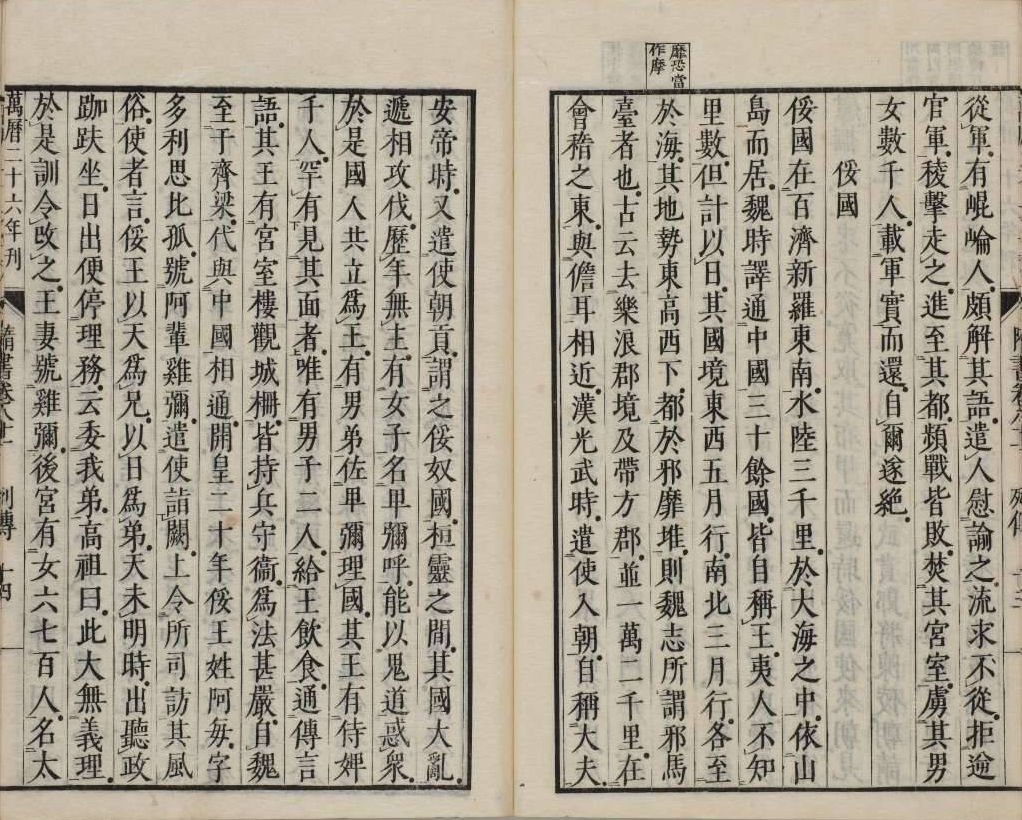 從軍有崐崘人頗解其語遣人慰諭之流求不從拒逆
官軍稜擊走之進至其都頻戰皆敗焚其宮室虜其男
女數千人載軍實而還自爾遂絶
俀國
俀國在百濟新羅東南水陸三千里於大海之中依山
島而居魏時譯通中國三十餘國皆自稱王夷人不知
里數但計以日其國境東西五月行南北三月行各至
靡恐當
作摩
於海其地勢東高西下都於邪靡堆則魏志所謂邪馬
臺者也古云去樂浪郡境及帶方郡並一萬二千里在
會稽之東與儋耳相近漢光武時遣使入朝自稱大夫
安帝時又遣使朝貢謂之俀奴國桓靈之間其國大亂
遞相攻伐歷年無主有女子名卑彌呼能以鬼道惑衆
於是國人共立爲王有男弟佐卑彌理國其王有侍婢
千人罕有見其面者唯有男子二人給王飲食通傳言
語其王有宮室樓觀城柵皆持兵守衞爲法甚嚴自魏
至于齊梁代與中國相通開皇二十年俀王姓阿每字
多利思比孤號阿輩雞彌遣使詣闕上令所司訪其風
俗使者言俀王以天爲兄以日爲弟天未明時出聽政
跏趺坐日出便停理務云委我弟高祖曰此大無義理
於是訓令改之王妻號雞彌後宮有女六七百人名太
萬曆二十六年刊 隋書卷八十一 列傳 十四